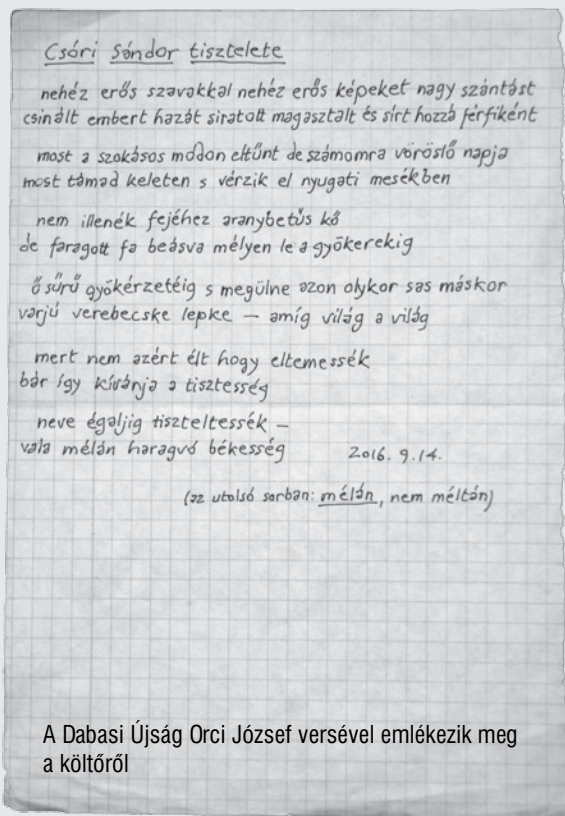 Csóri Sándor tisztelete
nehéz erős szavakkal nehéz erős képeket nagy szántást
csinált embert hazát siratott magasztalt és sírt hozzá férfiként
most a szokásos módon eltűnt de számomra vöröslő napja
most támad keleten s vérzik el nyugati mesékben
nem illenék fejéhez aranybetűs kő
de faragott fa beásva mélyen le a gyökerekig
ő sűrű gyökérzetéig s megülne azon olykor sas máskor
varjú verebecske lepke – amíg világ a világ
mert nem azért élt hogy eltemessék
bár így kívánja a tisztesség
neve égaljig tiszteltessék –
vala mélán haragvó békesség 2016. 9.14.
(az utolsó sorban: mélán, nem méltán)
A Dabasi Újság Orci József versével emlékezik meg
a költőről